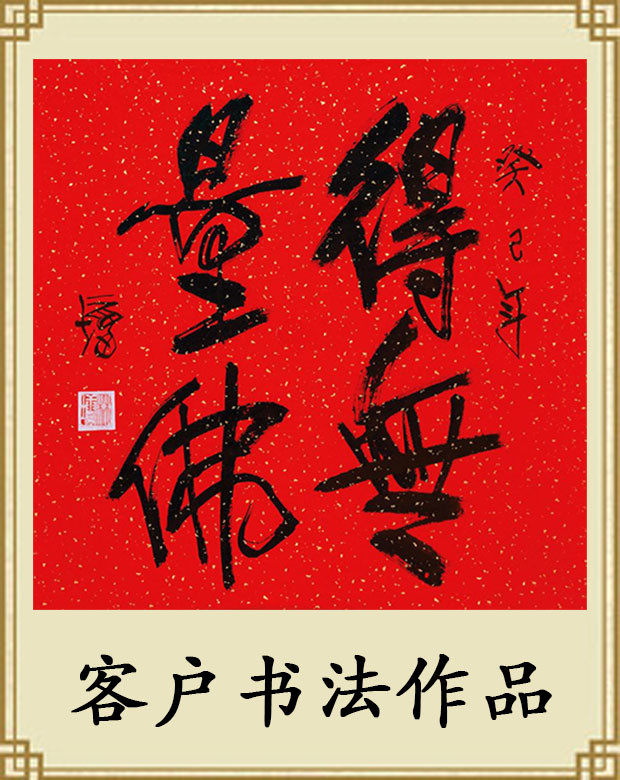 癸巳年
得無
量佛
客户书法作品